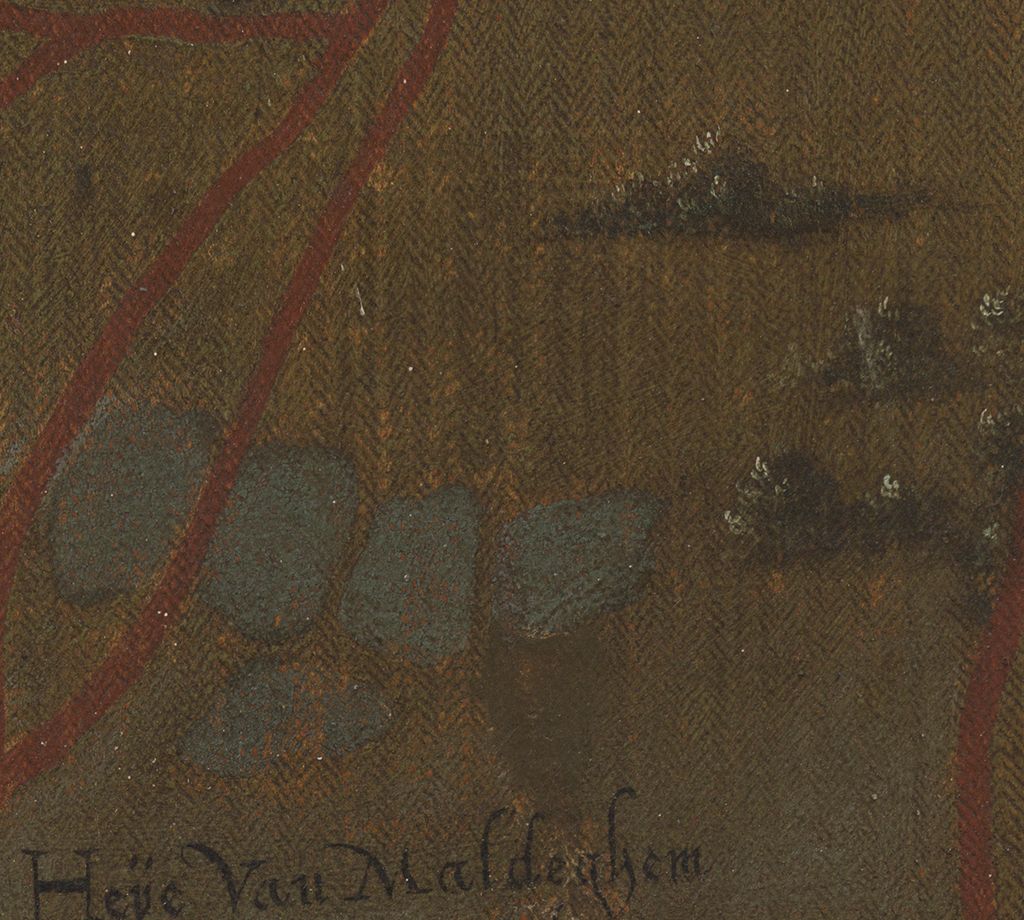 Heÿe Van Maldeghem